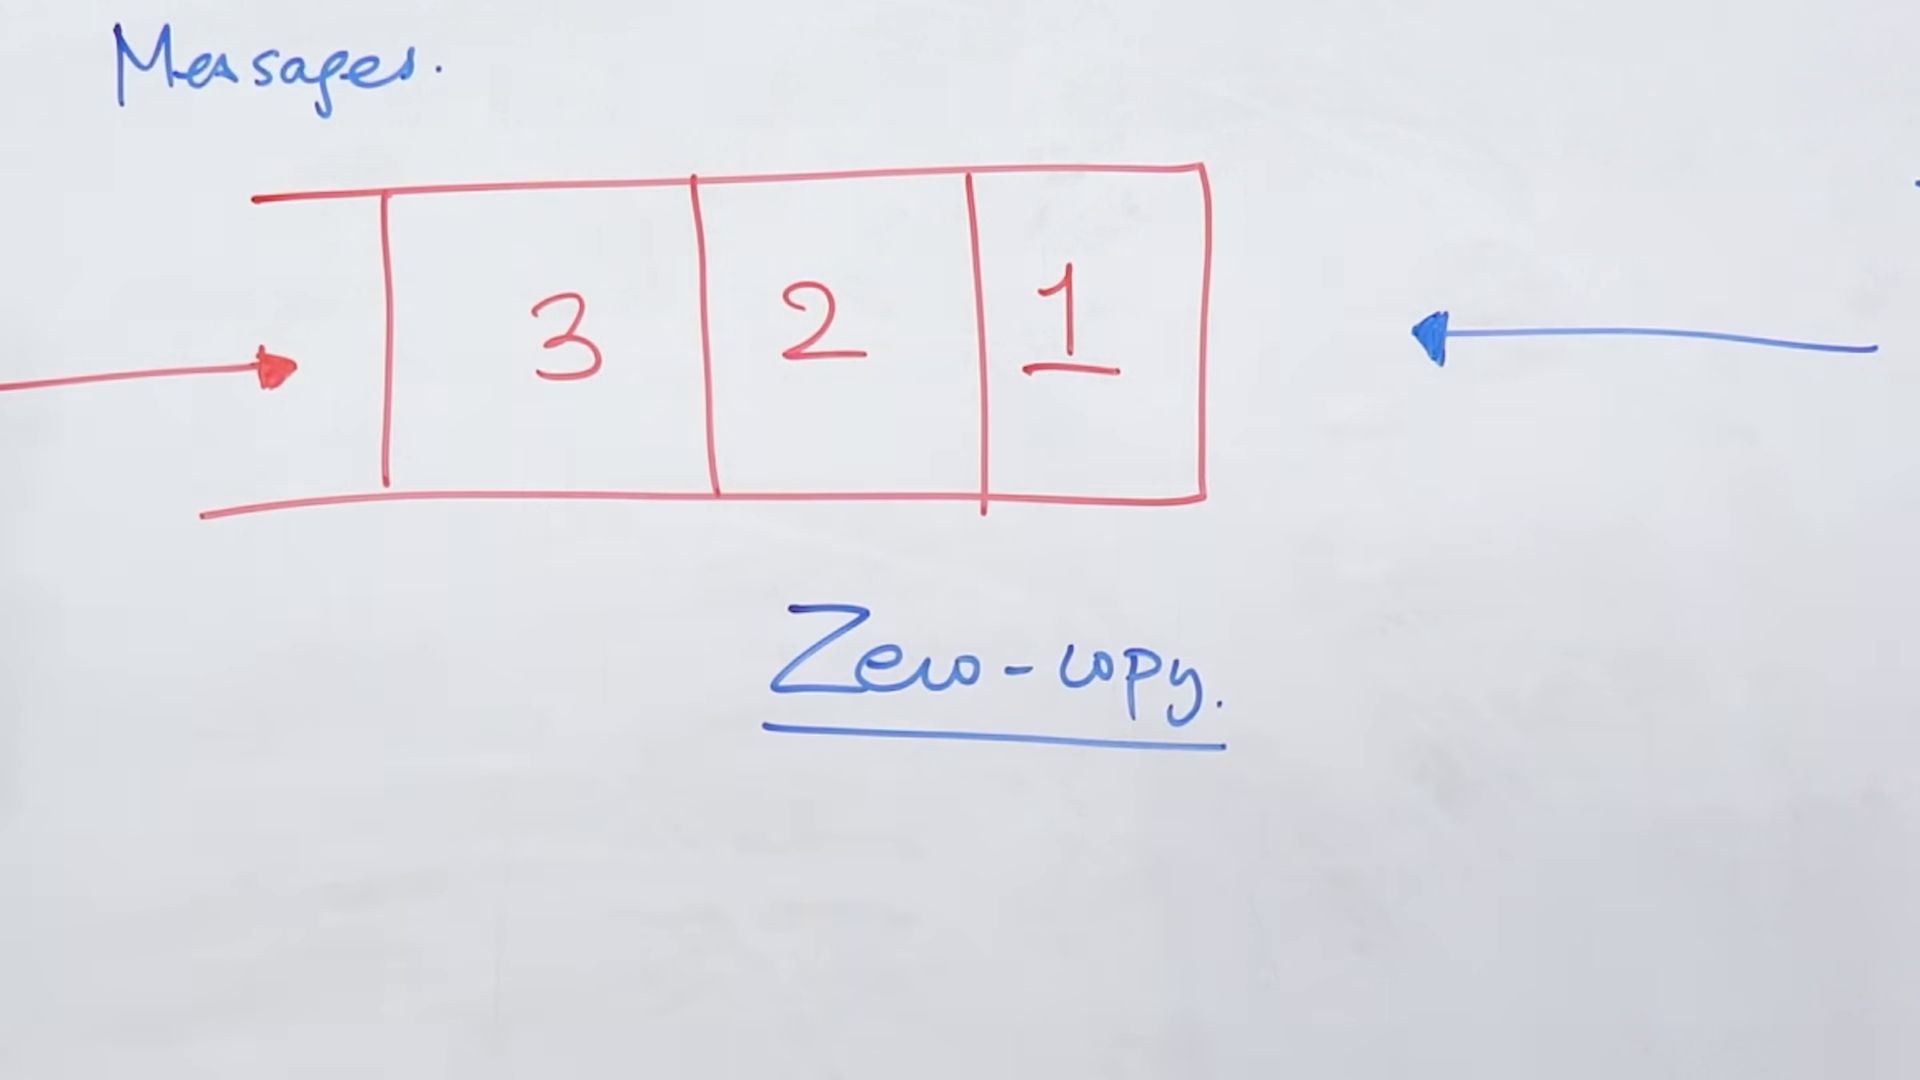 Messages.
3 2 1
Zero-copy.